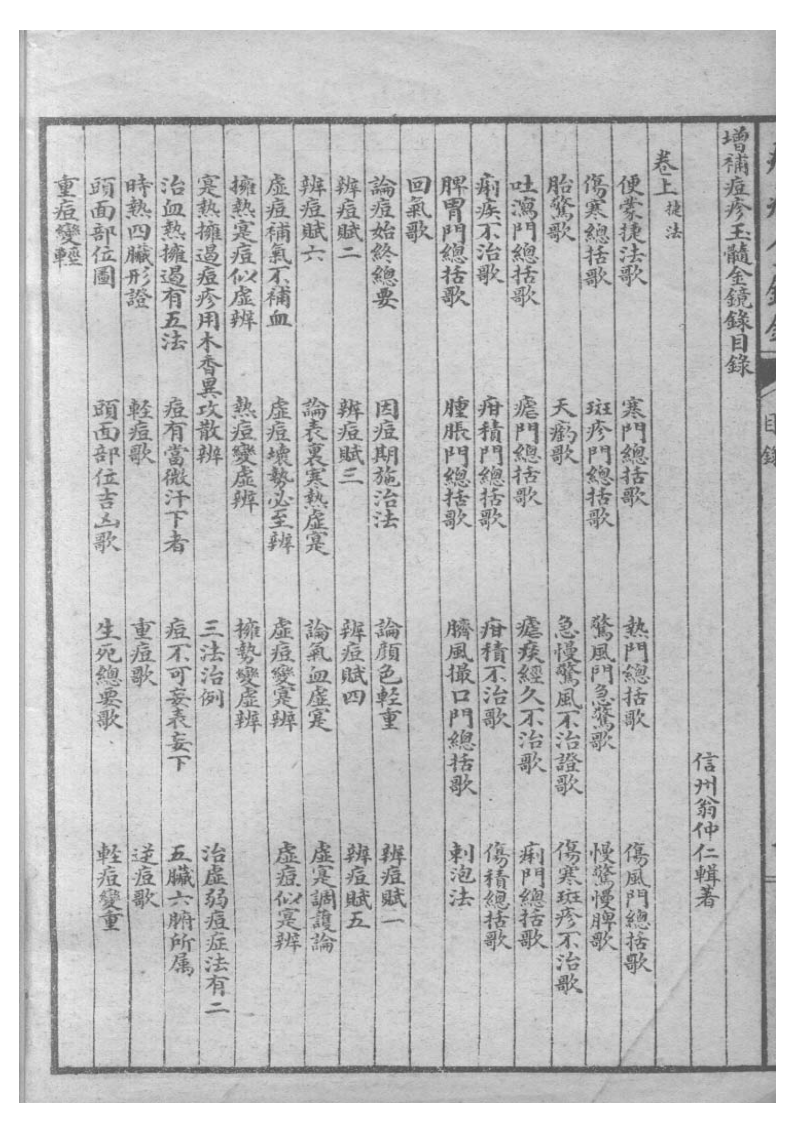 增補痘疹玉髓金鏡錄目錄
信州翁仲仁輯著
卷上 捷法
便蒙捷法歌 寒門總括歌 熱門總括歌 傷風門總括歌
傷寒總括歌 斑疹門總括歌 驚風門急驚歌 慢驚慢脾歌
胎驚歌 天癎歌 急慢驚風不治證歌 傷寒斑疹不治歌
吐瀉門總括歌 瘧門總括歌 瘧痰經久不治歌 痢門總括歌
痢疾不治歌 疳積門總括歌 疳積不治歌 傷積總括歌
脾胃門總括歌 腫脹門總括歌 臍風撮口門總括歌 刺泡法
回氣歌
論痘始終總要 因痘期施治法 論顏色輕重 辨痘賦一
辨痘賦二 辨痘賦三 辨痘賦四 辨痘賦五
辨痘賦六 論表裏寒熱虛寔 論氣血虛寔 虛寔調護論
虛痘補氣不補血 虛痘壞勢必至辨 虛痘變寔辨 虛痘似寔辨
擁熱寔痘似虛辨 熱痘變虛辨 擁勢變虛辨
寔熱擁遏痘疹用木香異攻散辨 三法治例 治虛弱痘症法有二
治血熱擁遏有五法 痘有當微汗下者 痘不可妄表妄下 五臟六腑所属
時熱四臟形證 輕痘歌 重痘歌 逆痘歌
頭面部位圖 頭面部位吉凶歌 生死總要歌 輕痘變重
重痘變輕
目錄